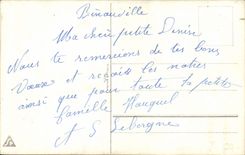 Binauville
Ma chère petite Denise
Nous te remercions de tes bons
Vœux et reçois les notres
ainsi que pour toute la petite
famille Mauguel
A S Leborgne